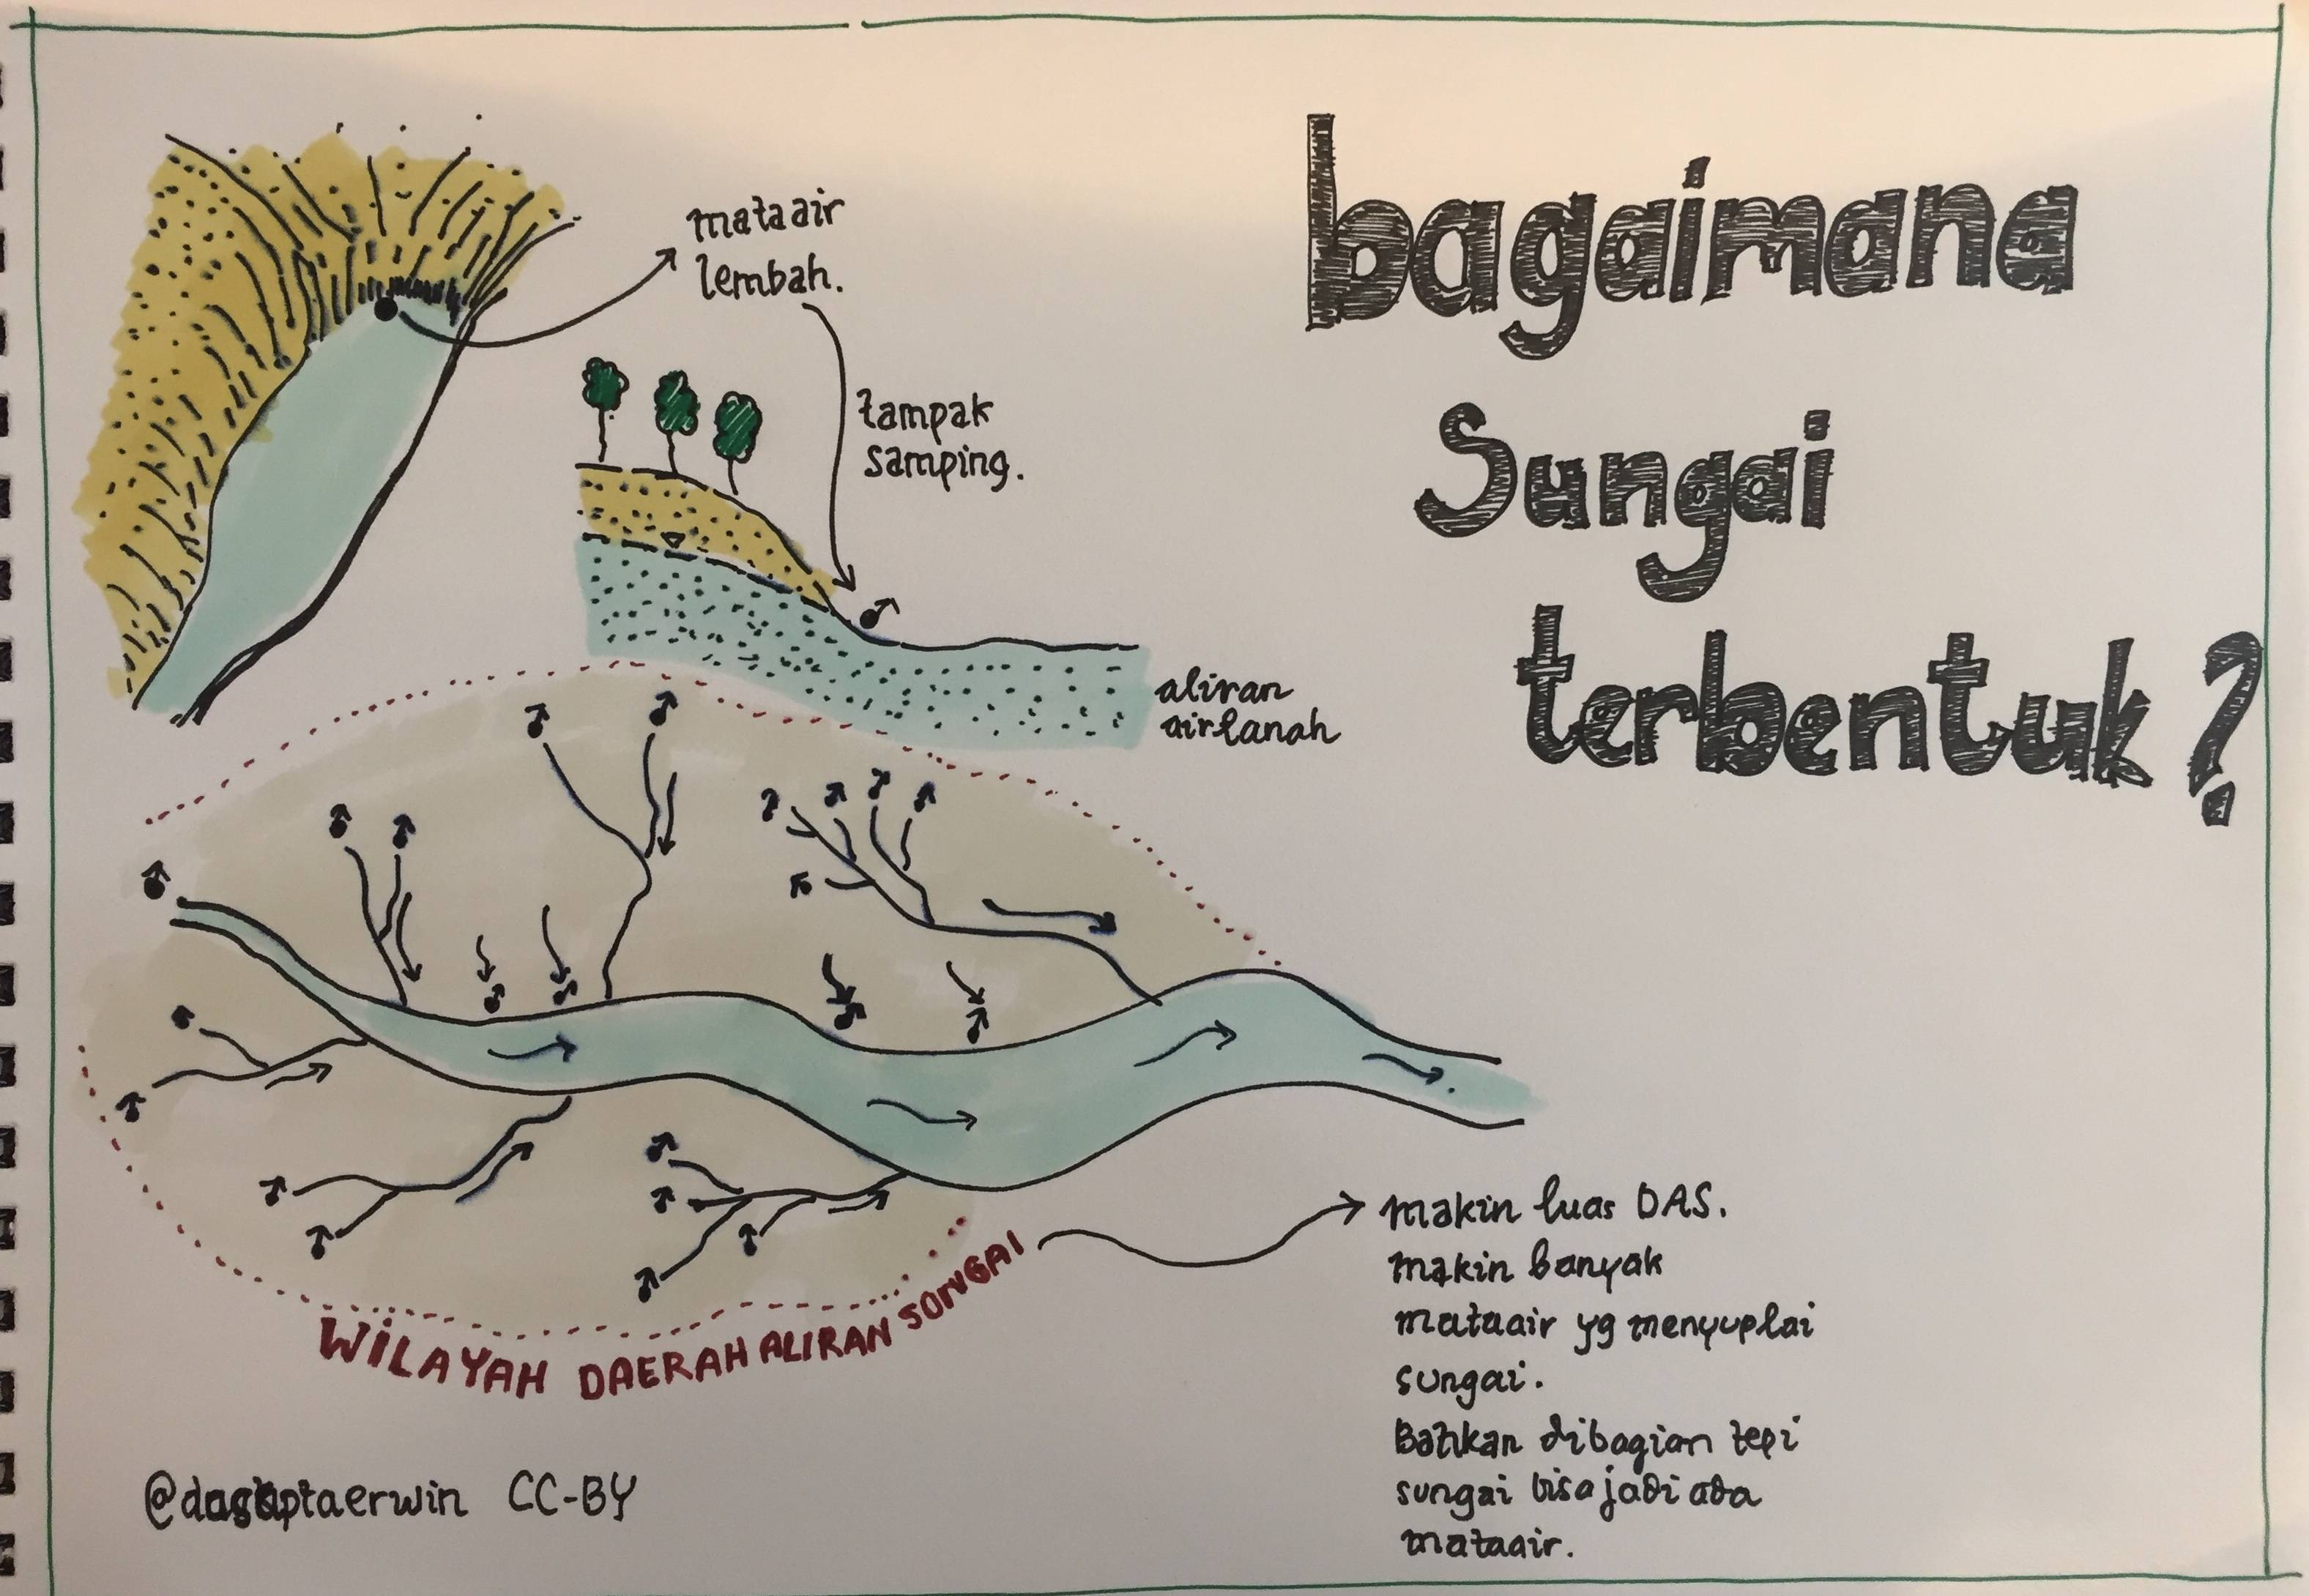 bagaimana
Sungai
terbentuk?
mataair
lembah.
tampak
samping.
aliran
airtanah
WILAYAH DAERAH ALIRAN SUNGAI
makin luas DAS.
makin banyak
mataair yg menyuplai
sungai.
Bahkan dibagian tepi
sungai bisa jadi ada
mataair.
@dasaptaerwin CC-BY